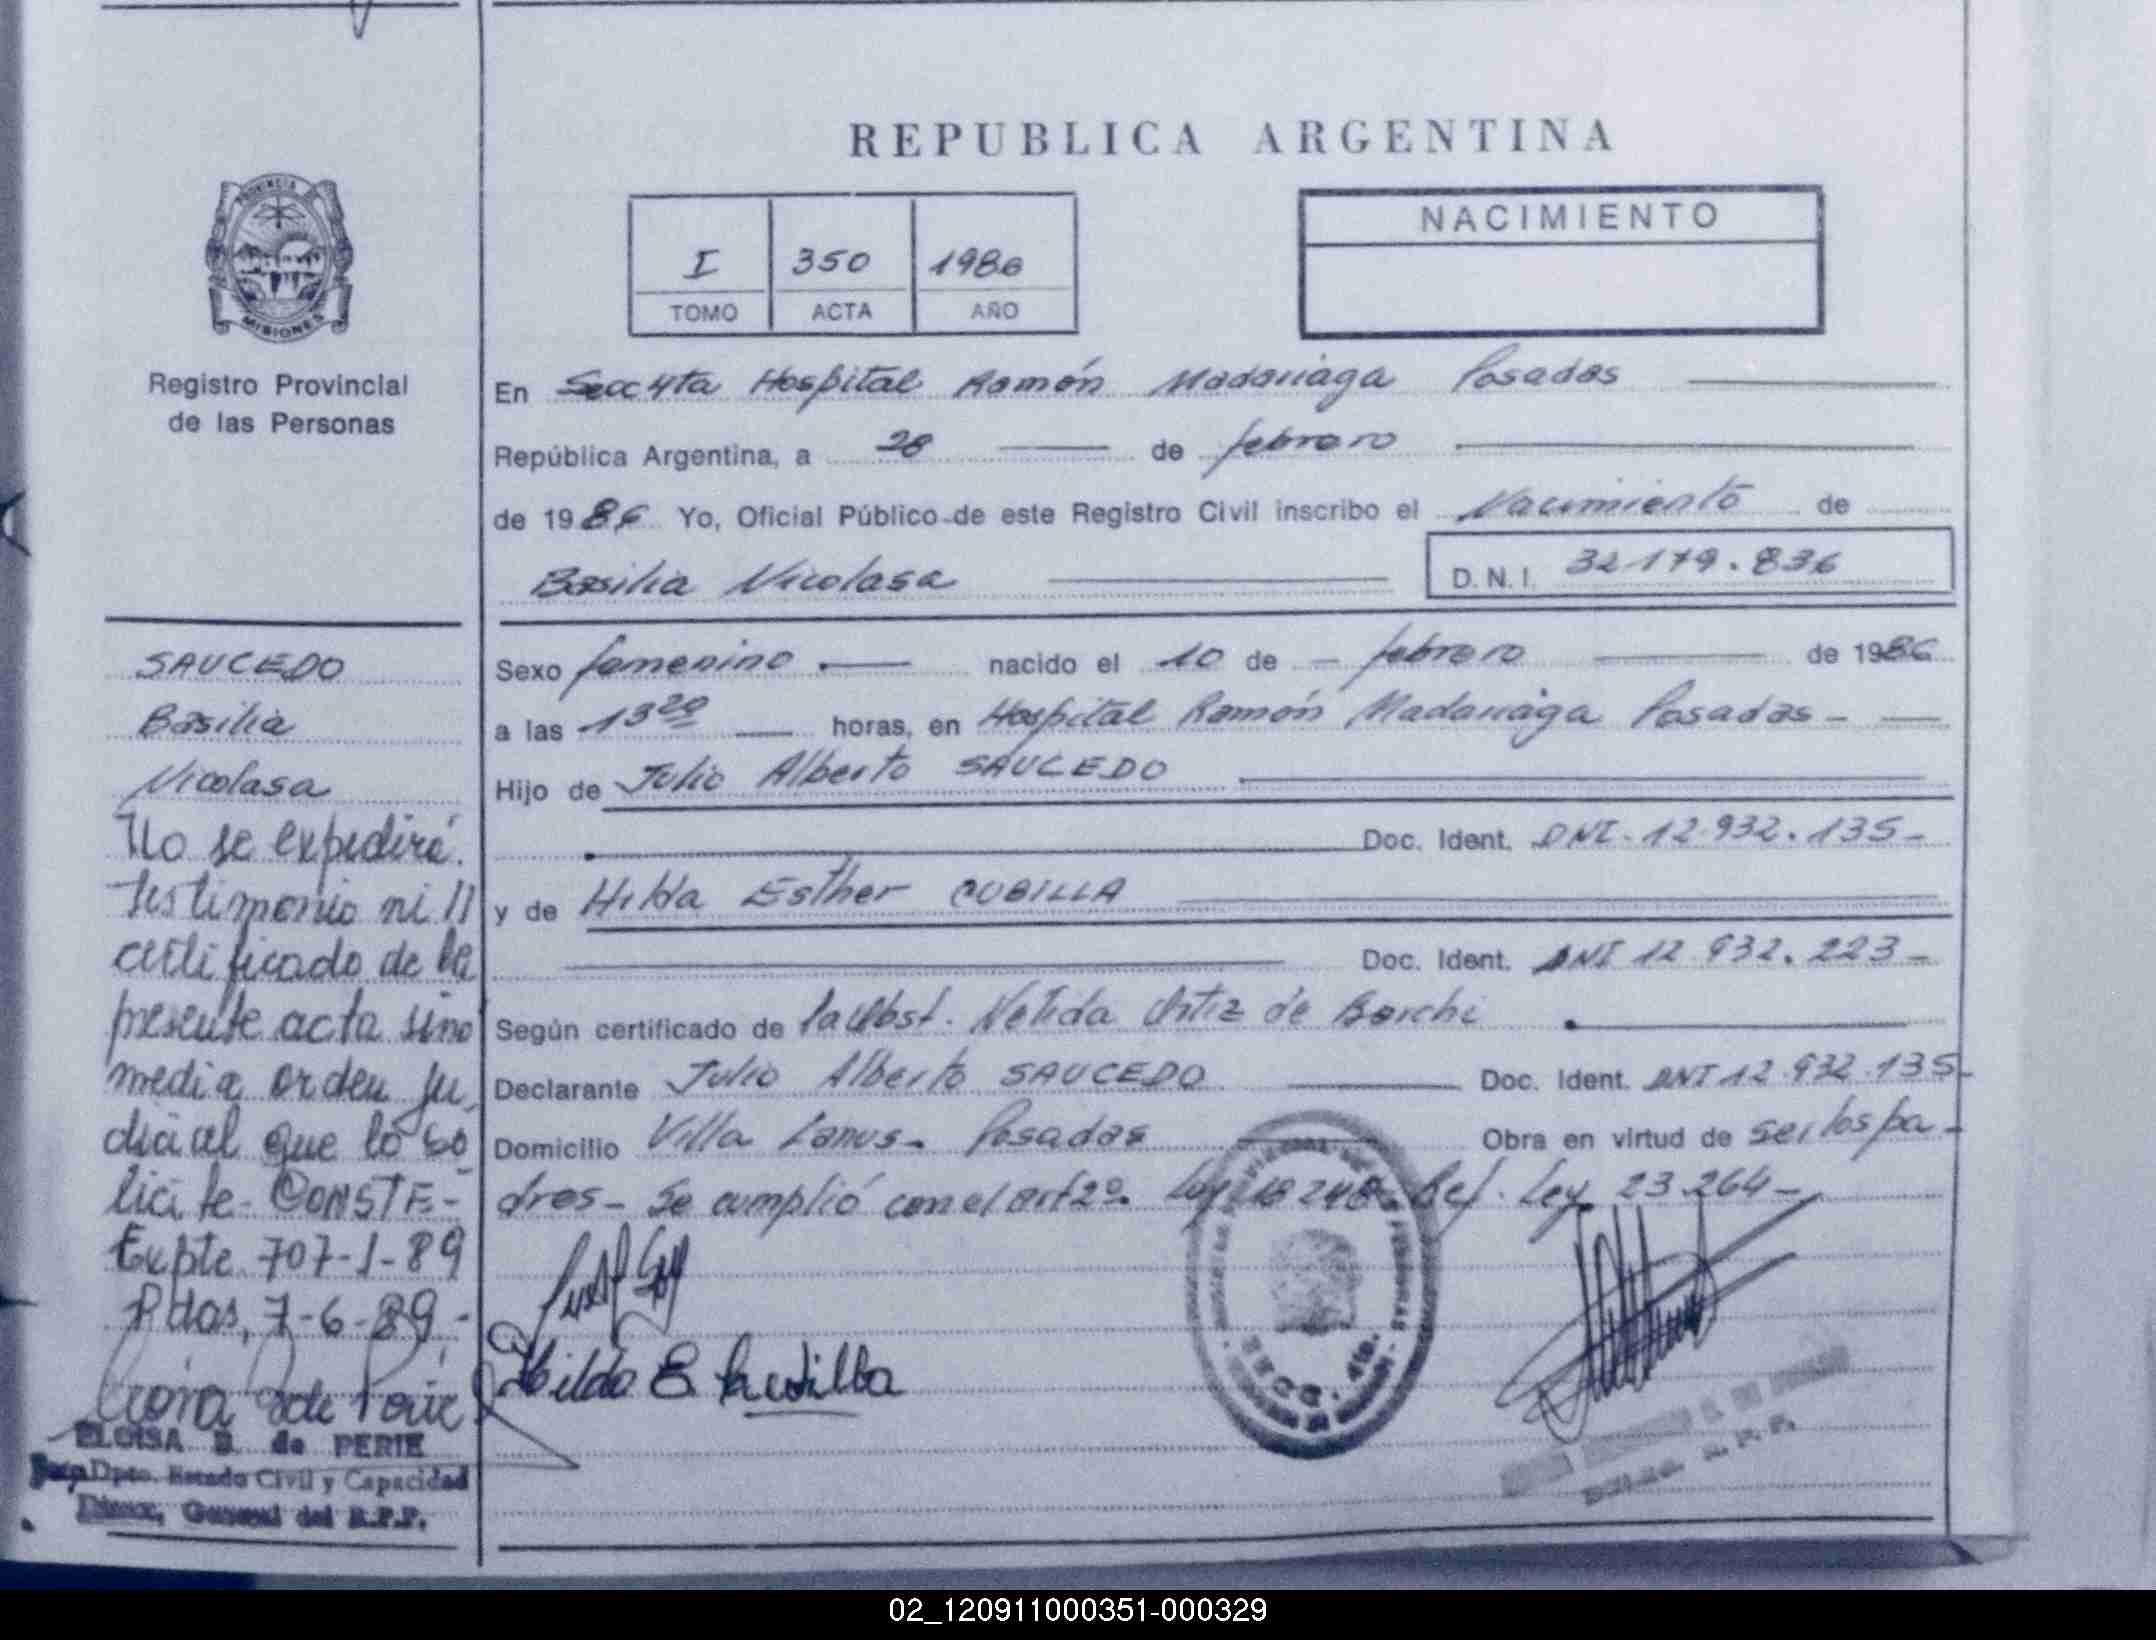 REPUBLICA ARGENTINA
PROVINCIA
MISIONES
Registro Provincial
de las Personas
I 350 1986
TOMO ACTA AÑO
NACIMIENTO
En Secc 4ta Hospital Ramón Madariaga Posadas
República Argentina, a 28 de febrero
de 1986 Yo, Oficial Público de este Registro Civil inscribo el Nacimiento de
Basilia Nicolasa D.N.I. 32.179.836
SAUCEDO
Basilia
Nicolasa
No se expedirá
testimonio ni
certificado de la
presente acta sino
media orden ju-
dicial que lo so
licite- CONSTE-
Expte 707-1-89
Pdas, 7-6-89.-
ELOISA B. de PERIE
Dpto. Estado Civil y Capacidad
Direcc. General del R.P.P.
Sexo femenino nacido el 10 de febrero de 1986
a las 13 20 horas, en Hospital Ramón Madariaga Posadas-
Hijo de Julio Alberto SAUCEDO
Doc. Ident. DNI-12.932.135-
y de Hilda Esther CUBILLA
Doc. Ident. DNI 12.932.223-
Según certificado de la Obst. Nelida Ortiz de Borchi
Declarante Julio Alberto SAUCEDO Doc. Ident. DNI 12.932.135-
Domicilio Villa Lanus- Posadas Obra en virtud de ser los pa-
dres- Se cumplió con el art 2º. Ley 18248 Ref. Ley 23.264-
Hilda E. Cubilla
SECC. 4ta.
02_120911000351-000329